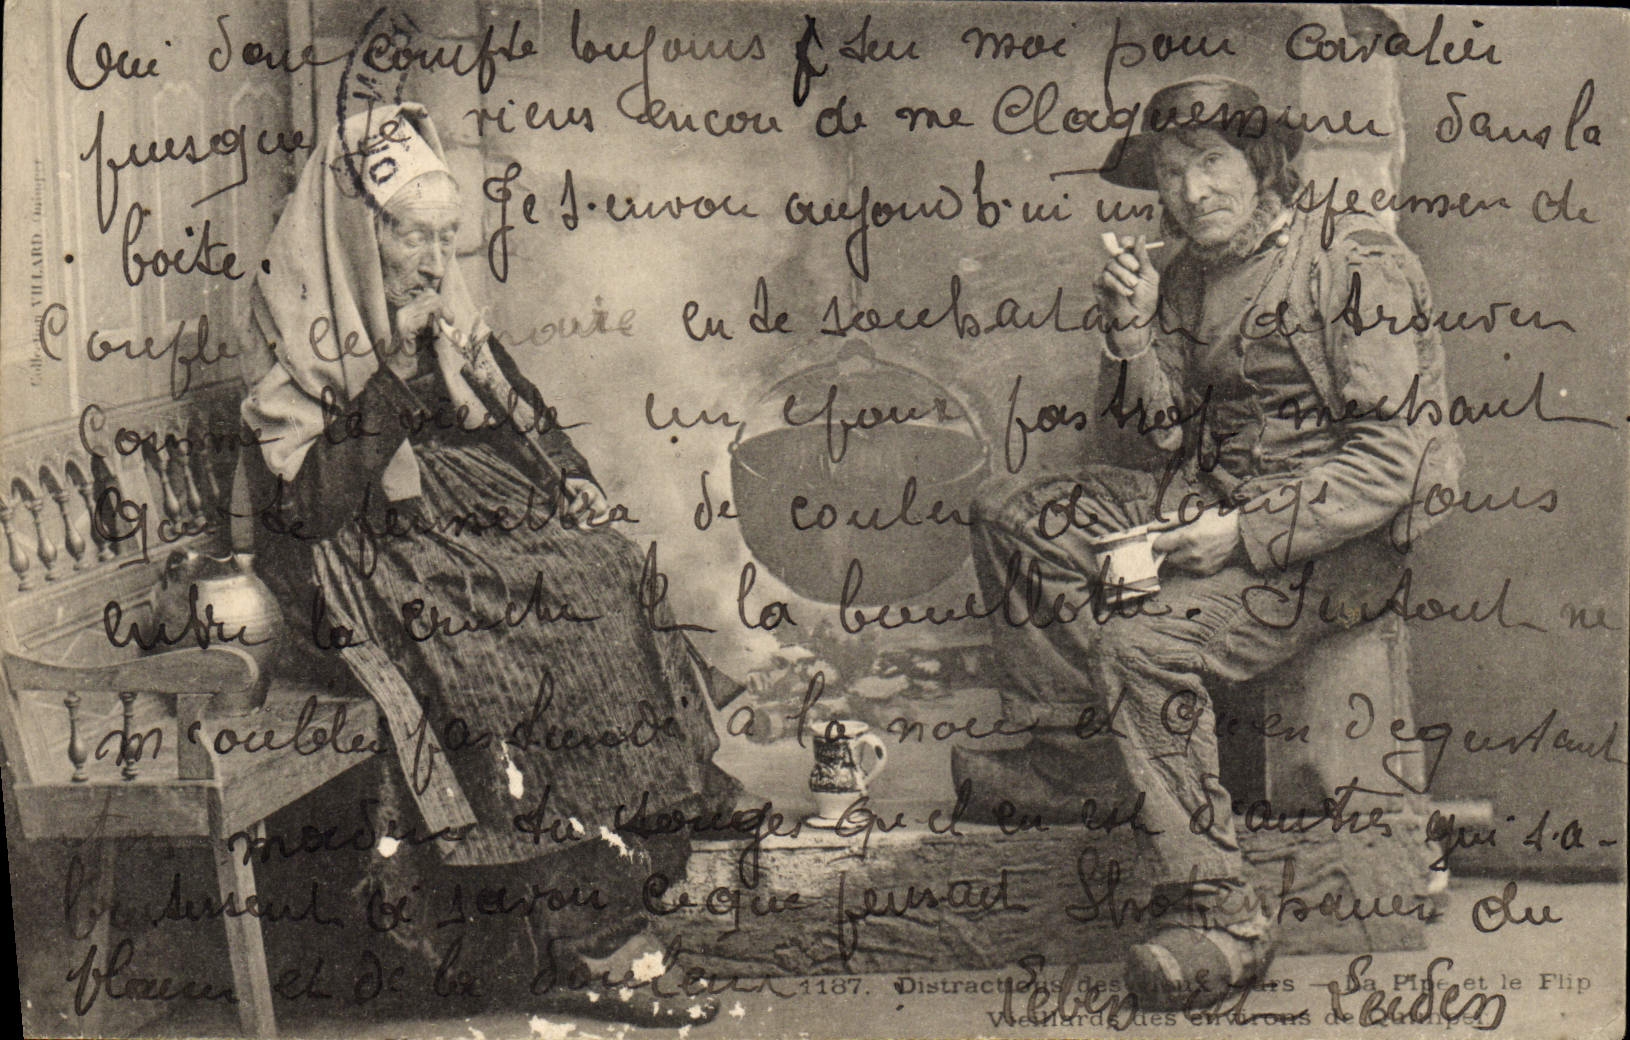 Oui donc compte toujours sur moi pour cavalier
puisque je viens encore de me Claquemurer dans la
boite. Je t'envoie aujourd'hui un specimen de
couple en te souhaitant de trouver
Comme la vieille un epoux pas trop mechant
Qui te permettra de couler de longs jours
entre la cruche et la bouillotte. Surtout ne
m'oublie pas lundi a la noce et qu'en degustant
madère tu songes qu'il en est d'autres qui s'a-
brutissent à savoir ce que pensait Shopenhauer du
plaisir et de la douleur
Leben ist Leiden
Collection VILLARD Quimper
1187. Distractions des vieux jours — La Pipe et le Flip
Vieillards des environs de Quimper